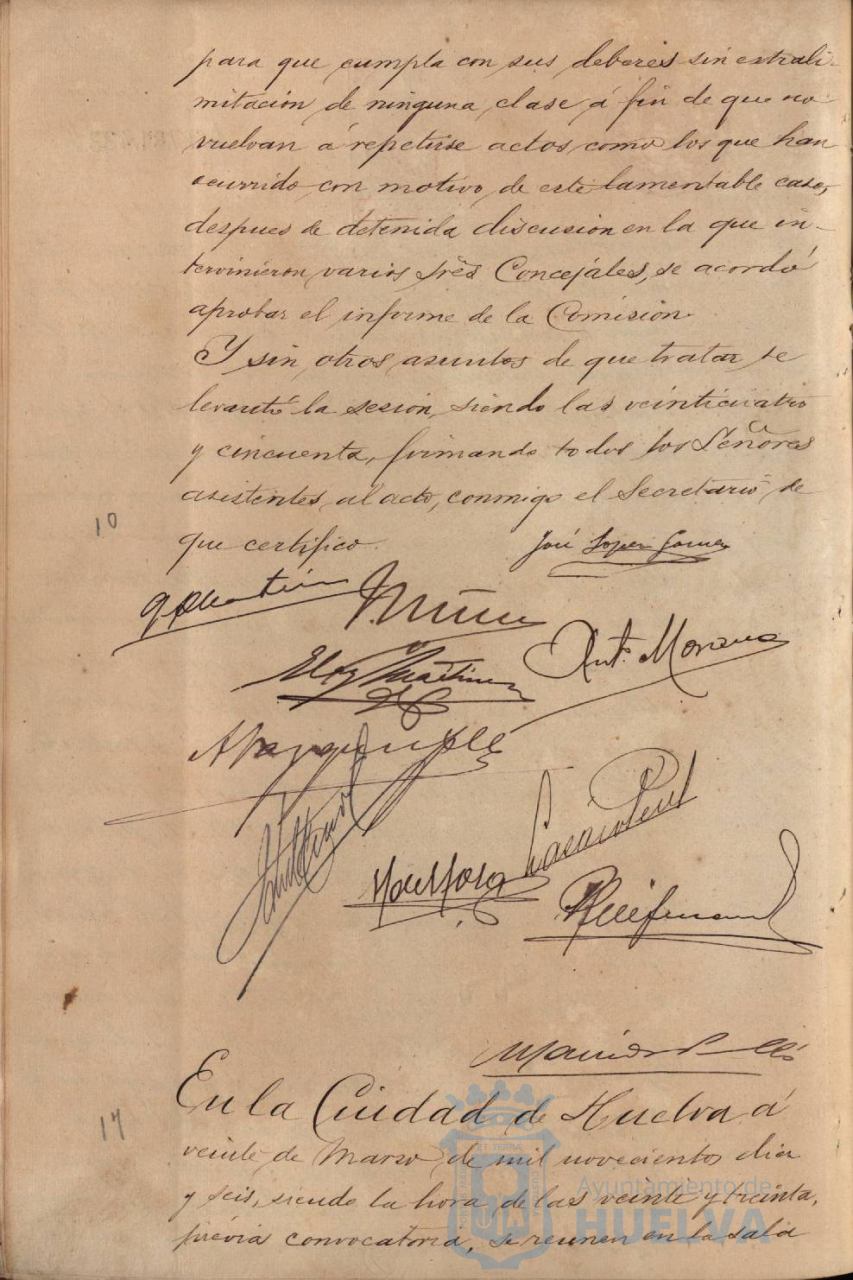 para que cumpla con sus deberes sin extrali-
mitación de ninguna clase á fin de que no
vuelvan á repetirse actos como los que han
ocurrido con motivo de este lamentable caso,
despues de detenida discusion en la que in-
tervinieron varios Sres Concejales, se acordó
aprobar el informe de la Comisión.
Y sin otros asuntos de que tratar se
levantó la sesión, siendo las veinticuatro
y cincuenta, firmando todos los Señores
asistentes al acto, conmigo el Secretario de
10
que certifico.
José Lopez
Eloy Martinez
Ant. Moreno
En la Ciudad de Huelva á
17
veinte de Marzo de mil novecientos diez
y seis, siendo la hora de las veinte y treinta,
prévia convocatoria, se reunen en la sala
Ayuntamiento de
HUELVA